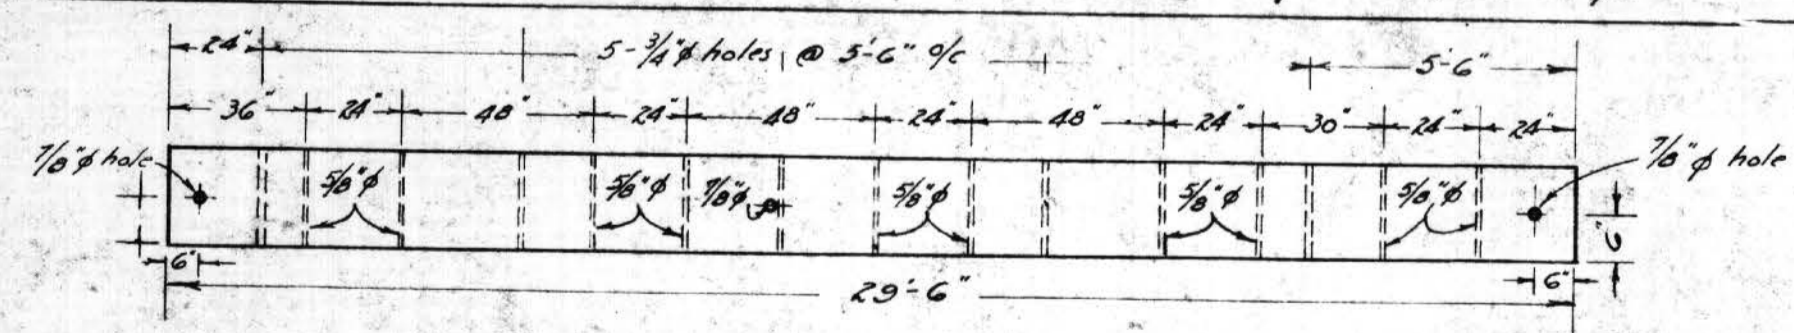 24" 5-3/4"ϕ holes @ 5'-6" o/c 5'-6"
36" 24" 48" 24" 48" 24" 48" 24" 30" 24" 24"
7/8"ϕ hole 5/8"ϕ 5/8"ϕ 7/8"ϕ 5/8"ϕ 5/8"ϕ 5/8"ϕ 7/8"ϕ hole
6"
6" 29'-6" 6"